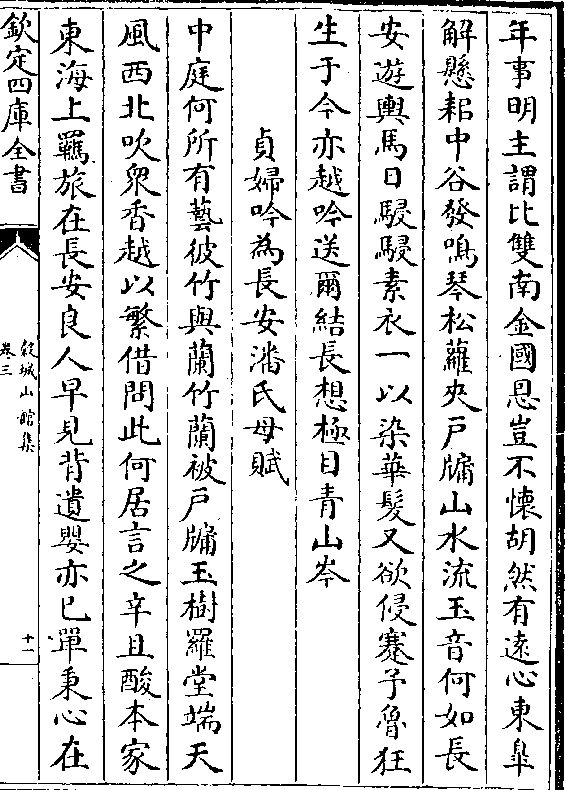 年事明主謂比雙南金國恩豈不懷胡然有遠心東臯
解懸耜中谷發鳴琴松蘿夾戶牖山水流玉音何如長
安遊輿馬日駸駸素衣一以染華髮又欲侵蹇予魯狂
生于今亦越吟送爾結長想極目青山岑
貞婦吟為長安潘氏母賦
中庭何所有藝彼竹與蘭竹蘭被戶牖玉樹羅堂端天
風西北吹衆香越以繁借問此何居言之辛且酸本家
東海上羈旅在長安良人早見背遺嬰亦已單秉心在
欽定四庫全書
糓城山館集
卷三
十一